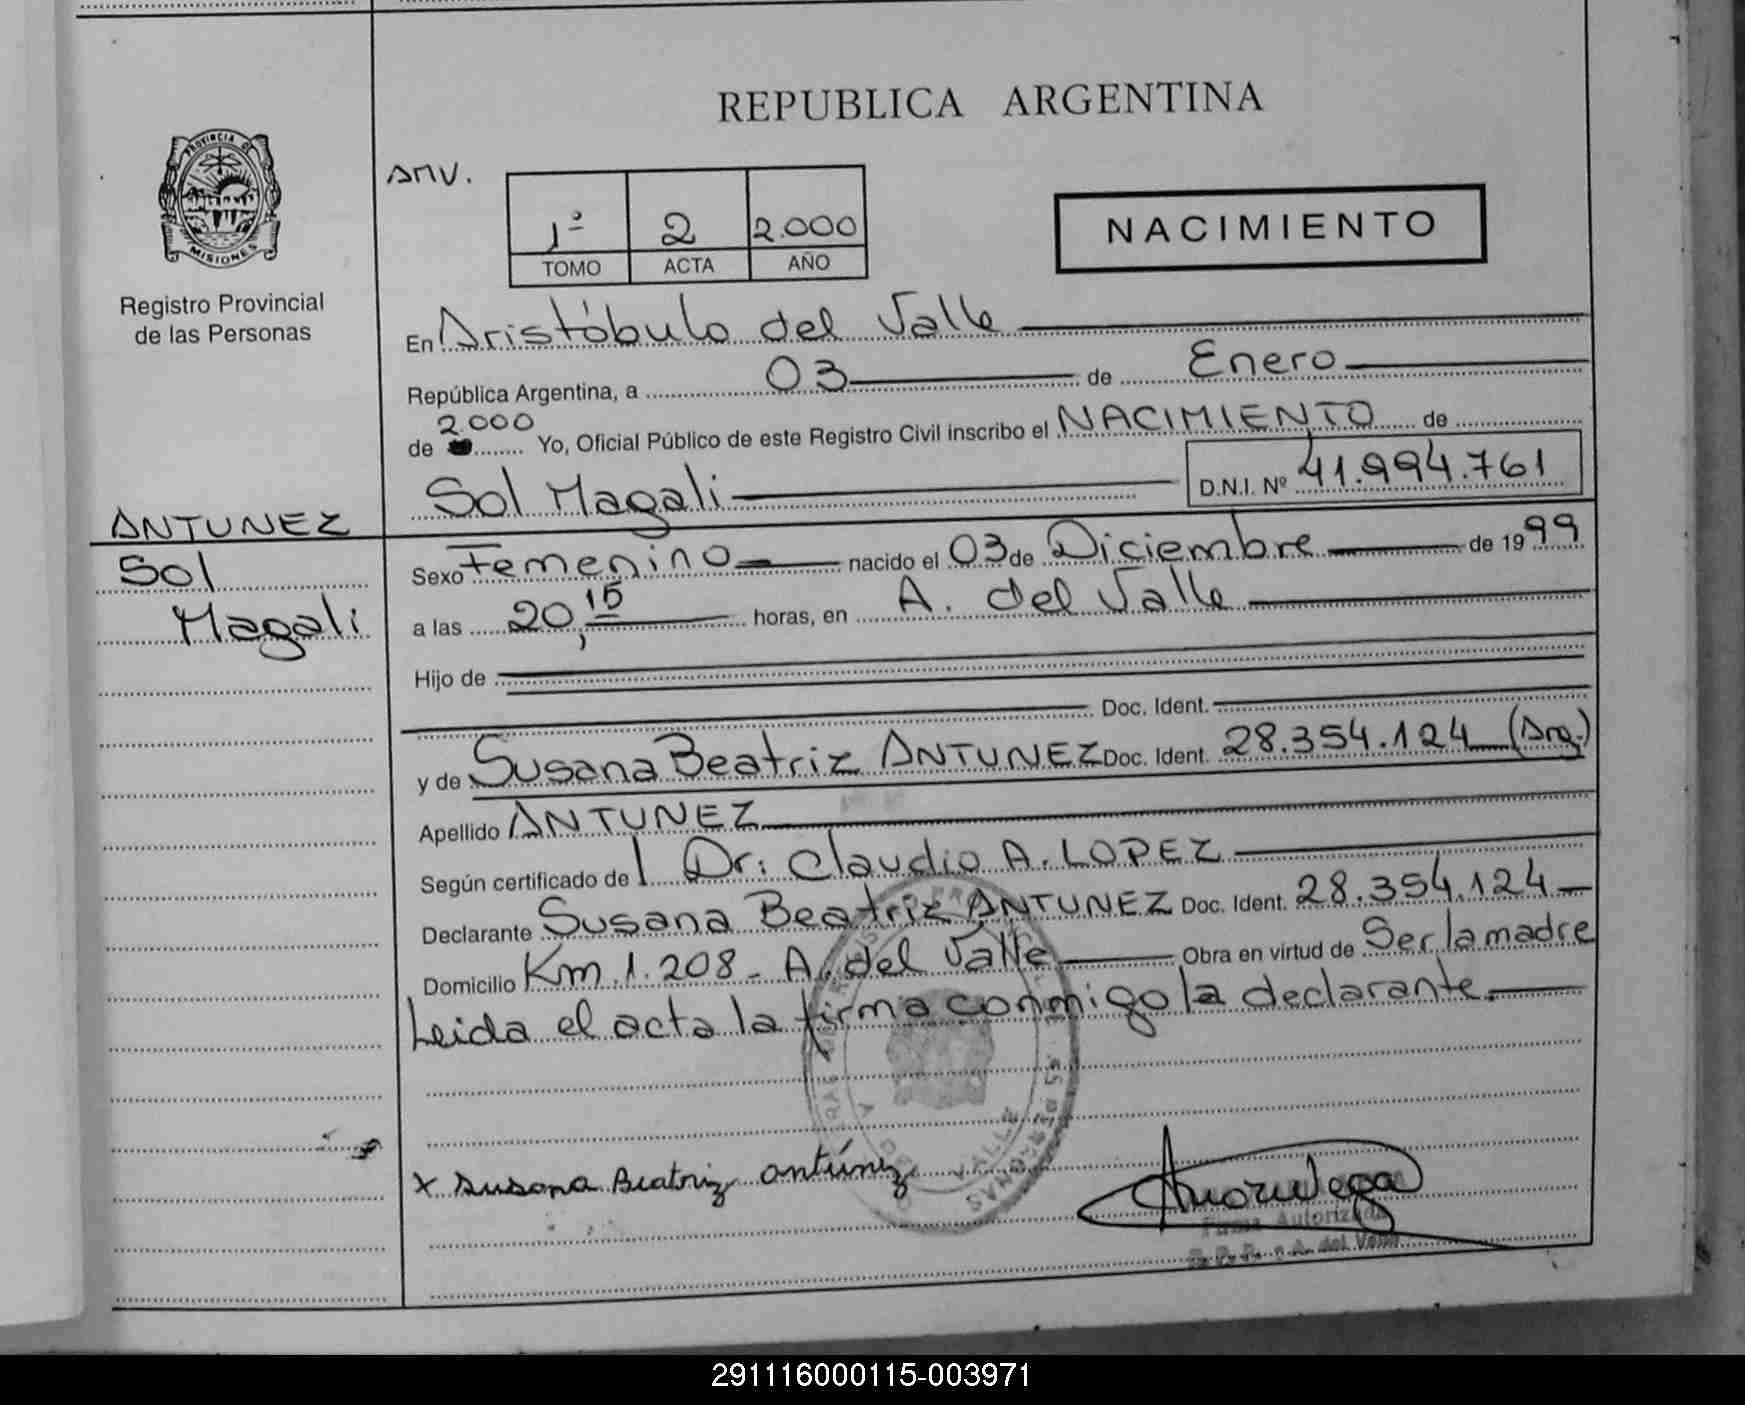 REPUBLICA ARGENTINA
PROVINCIA DE
MISIONES
Registro Provincial
de las Personas
1º 2 2.000
TOMO ACTA AÑO
NACIMIENTO
En Aristóbulo del Valle
República Argentina, a 03 de Enero
2.000
de Yo, Oficial Público de este Registro Civil inscribo el NACIMIENTO de
Sol Magali D.N.I. Nº 41.994.761
ANTUNEZ
Sol
Magali
Sexo Femenino nacido el 03 de Diciembre de 1999
a las 20,15 horas, en A. del Valle
Hijo de
Doc. Ident.
y de Susana Beatriz ANTUNEZ Doc. Ident. 28.354.124 (Arg.)
Apellido ANTUNEZ
Según certificado de Dr. Claudio A. LOPEZ
Declarante Susana Beatriz ANTUNEZ Doc. Ident. 28.354.124
Domicilio Km. 1.208 - A. del Valle Obra en virtud de Ser la madre
Leida el acta la firma conmigo la declarante.
x Susana Beatriz Antúnez
Firma Autorizada
A. del Valle
291116000115-003971